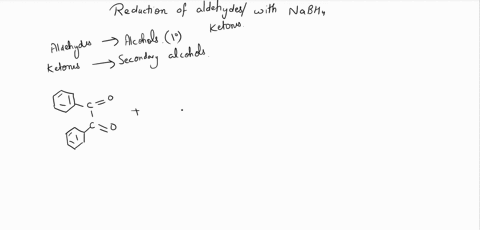 Reduction of aldehydes/ with NaBH4
Ketones
Aldehydes → Alcohols (1°)
Ketones → Secondary alcohols.
C=O +
C=O